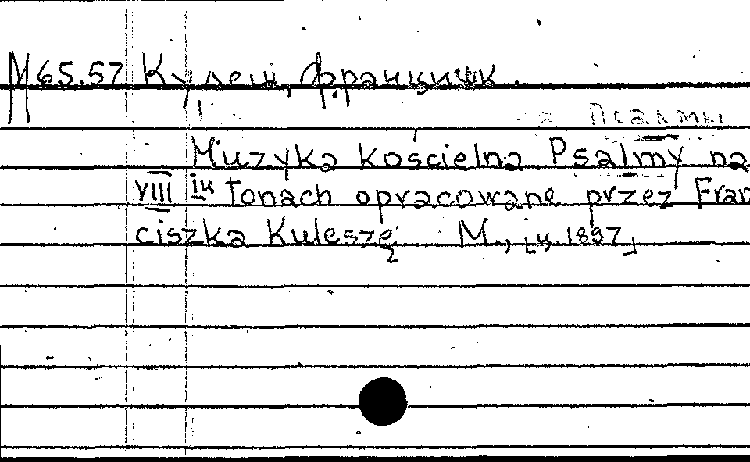 М65.57 Кулеш, Францишк.
Псалмы
Muzyka kościelna Psalmy na
VIII tonach opracowane przez Fran
ciszka Kuleszę M., [ц. 1897]